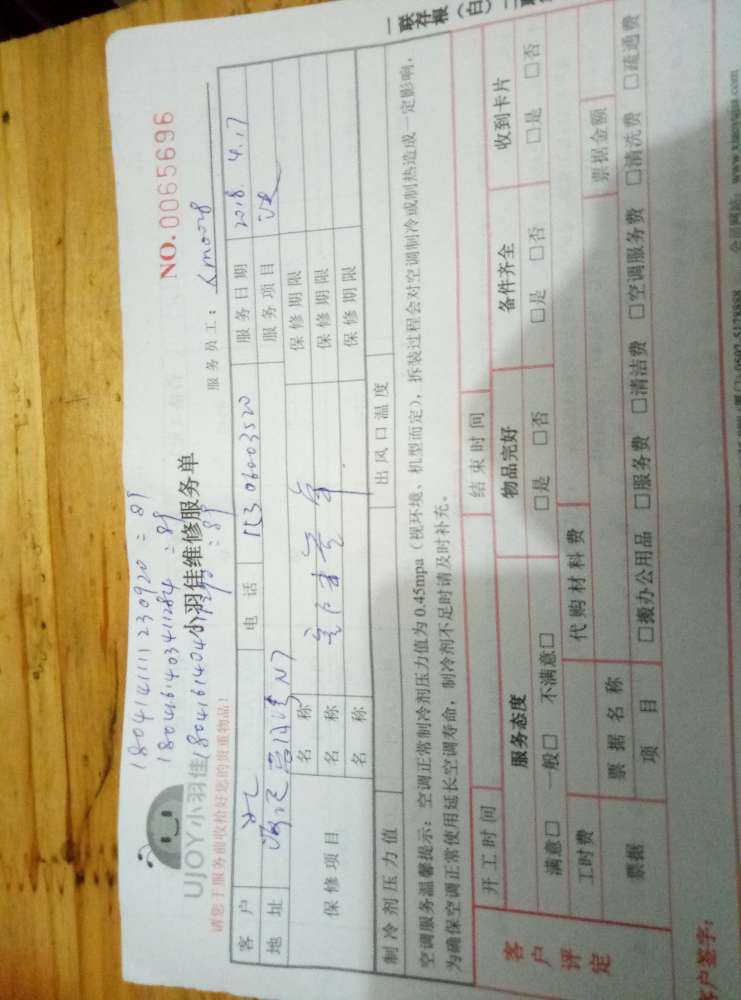 18041411111230920 = 89
180416140341284 = 89
UJOY小羽佳
小羽佳维修服务单
NO.0065696
请您于服务前收拾好您的贵重物品!
服务员工:
客户
电话 15306003520
服务日期 2018.4.17
地址
服务项目
保修项目
名称
保修期限
名称
保修期限
名称
保修期限
制冷剂压力值
出风口温度
空调服务温馨提示:空调正常制冷剂压力值为0.45mpa(视环境、机型而定),拆装过程会对空调制冷或制热造成一定影响,
为确保空调正常使用延长空调寿命,制冷剂不足时请及时补充。
客户评定
开工时间
结束时间
服务态度
物品完好
备件齐全
收到卡片
满意□ 一般□ 不满意□
□是 □否
□是 □否
□是 □否
工时费
代购材料费
票据
票据名称
票据金额
项目
□搬办公用品 □服务费 □清洁费 □空调服务费 □清洗费 □疏通费
客户签字:
一联存根(白)二